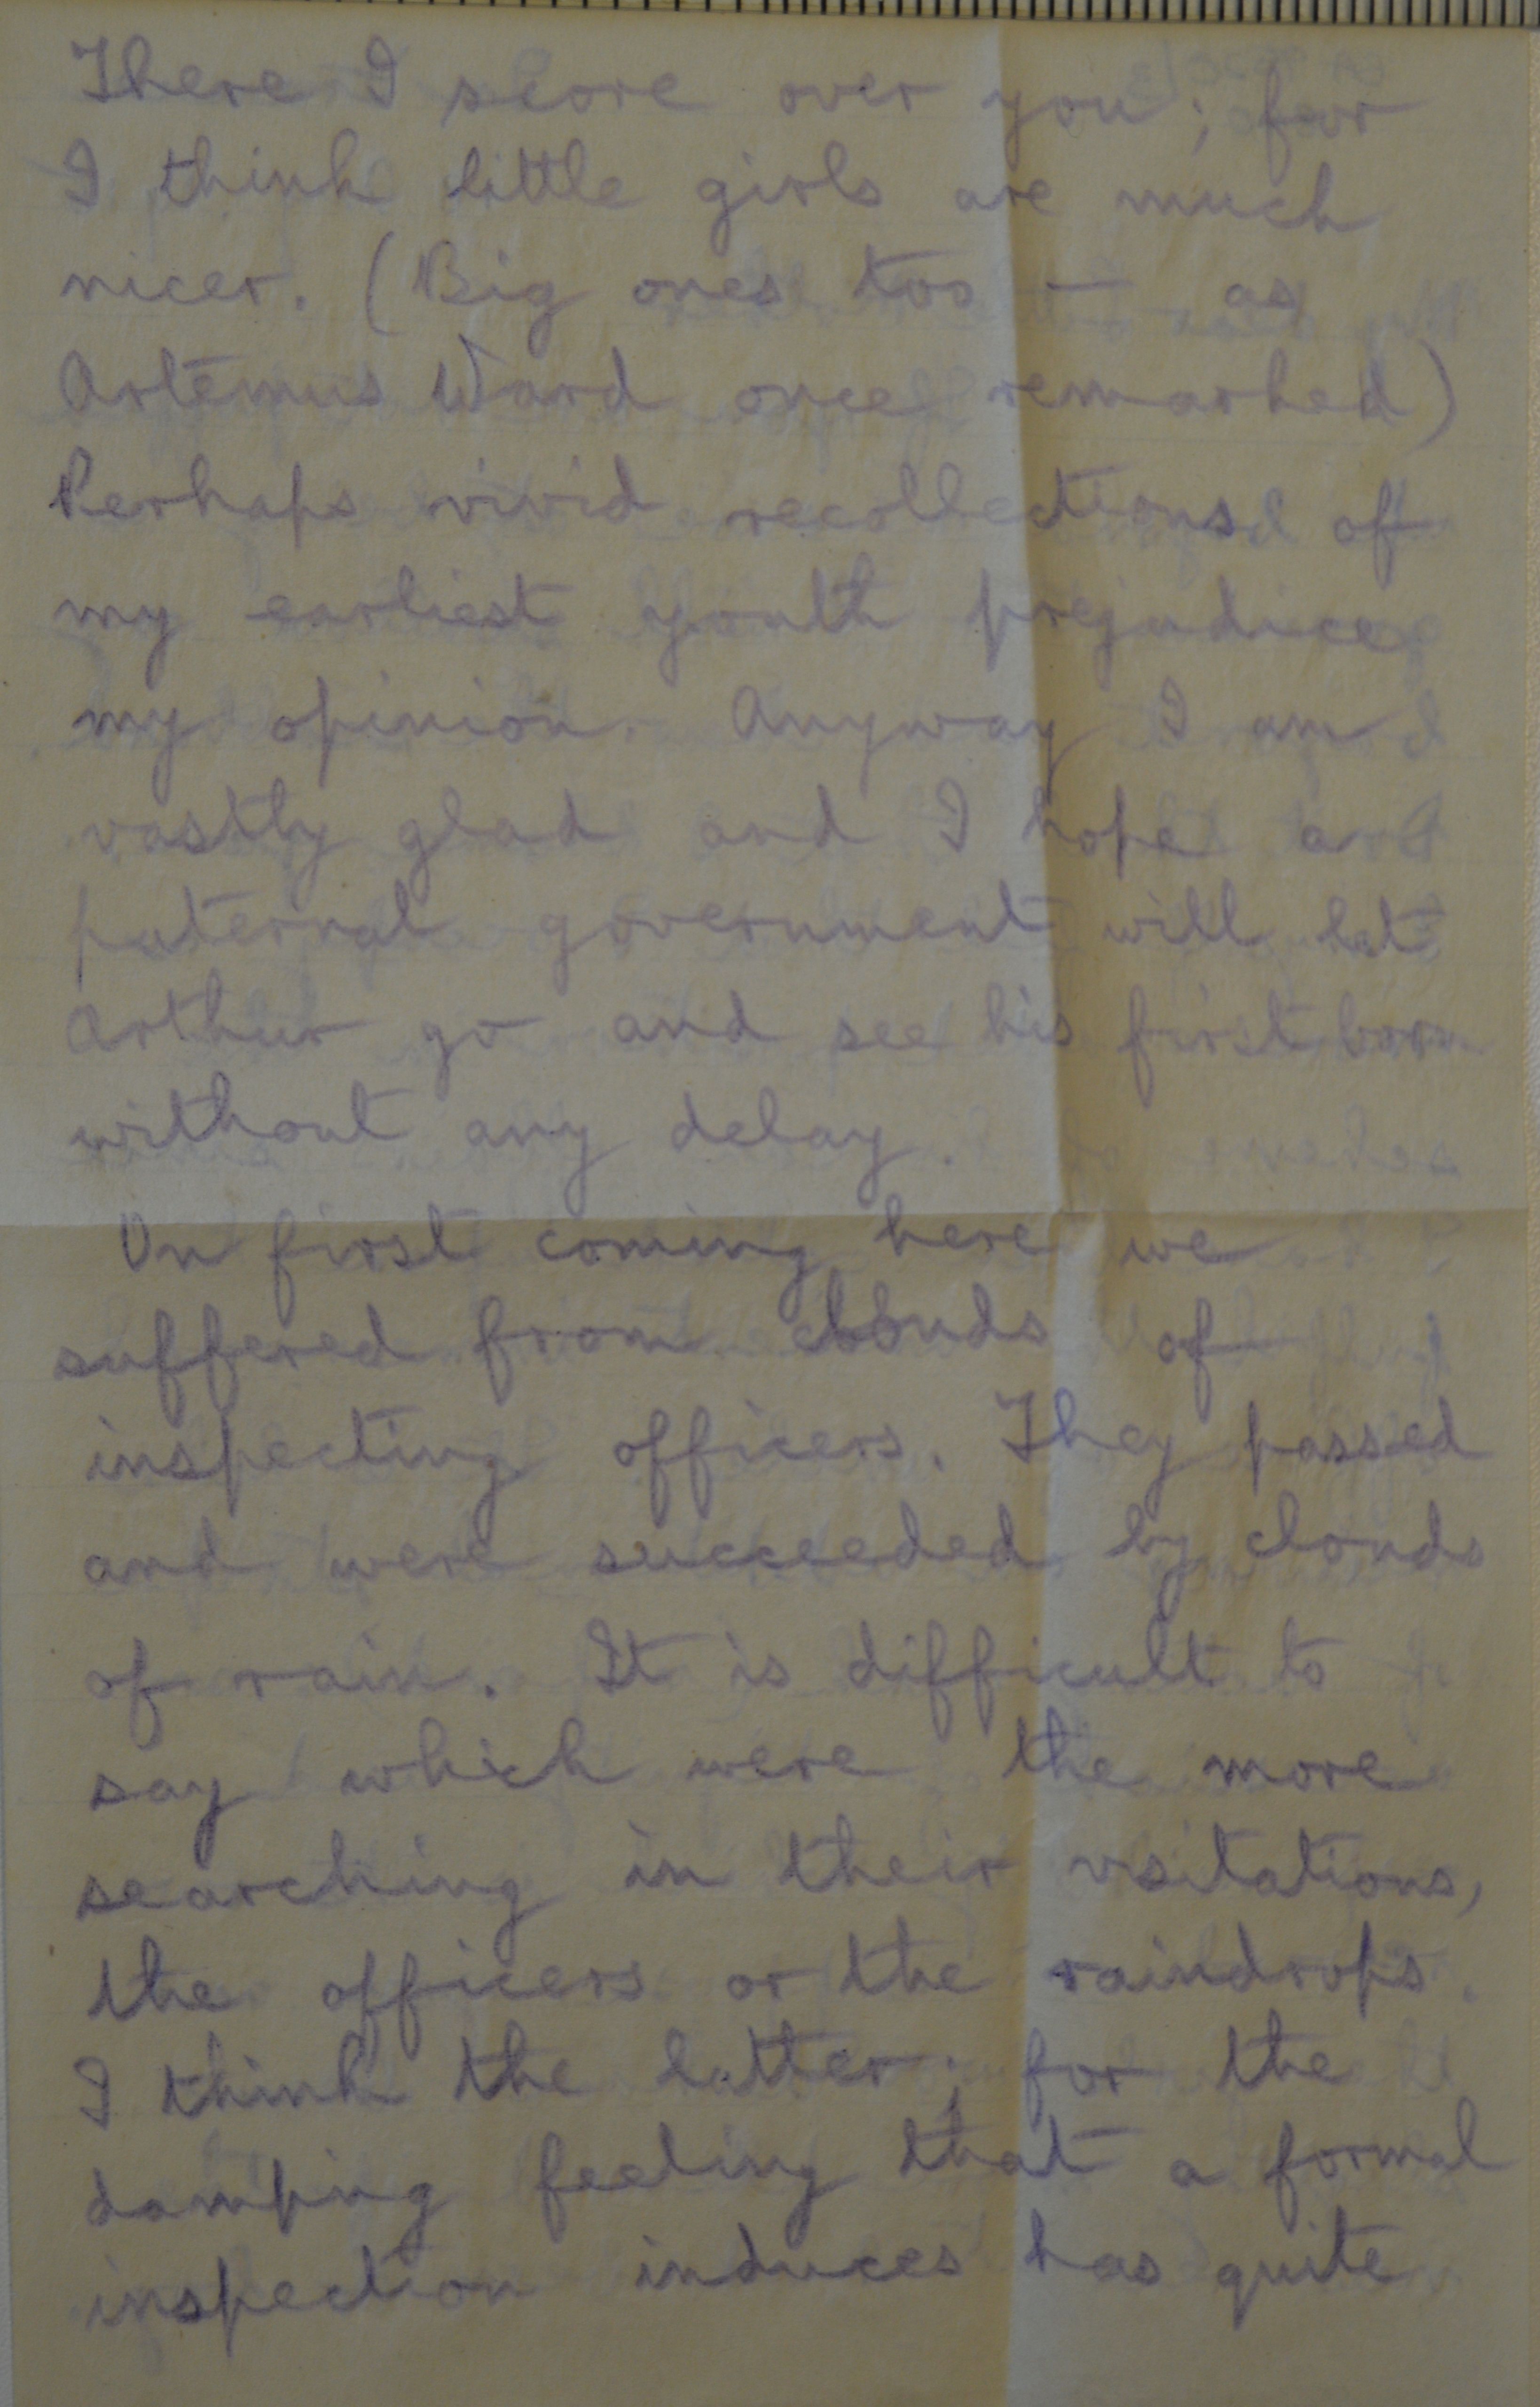 There I score over you; for
I think little girls are much
nicer. (Big ones too — as
Artemus Ward once remarked)
Perhaps vivid recollections of
my earliest youth prejudice
my opinion. Anyway I am
vastly glad and I hope a
paternal government will let
Arthur go and see his first born
without any delay.
On first coming here we
suffered from clouds of
inspecting officers. They passed
and were succeeded by clouds
of rain. It is difficult to
say which were the more
searching in their visitations,
the officers or the raindrops.
I think the latter; for the
damping feeling that a formal
inspection induces has quite